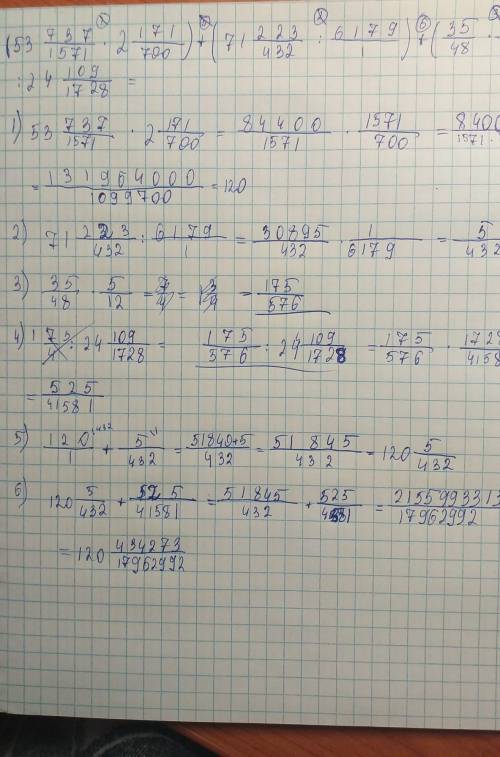 (53 737/1571 · 2 171/700) + (71 223/432 : 6179/1) + (35/48 ·
: 24 109/1728 =
1) 53 737/1571 · 2 171/700 = 84400/1571 · 1571/700 = 8400/1571 ·
= 131964000/1099700 = 120
2) 71 223/432 : 6179/1 = 30895/432 · 1/6179 = 5/432
3) 35/48 · 5/12 = 175/576
4) 175/576 : 24 109/1728 = 175/576 · 1728/41581
= 525/41581
5) 120/1 + 5/432 = 51840+5/432 = 51845/432 = 120 5/432
6) 120 5/432 + 525/41581 = 51845/432 + 525/41581 = 2155993313/17962992
= 120 434273/17962992